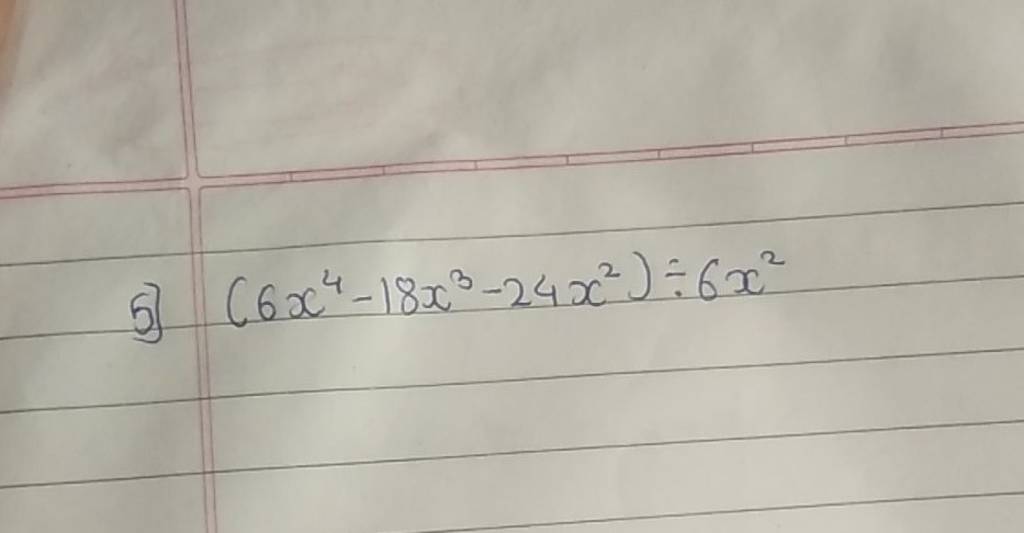 5] (6x⁴-18x³-24x²)÷6x²